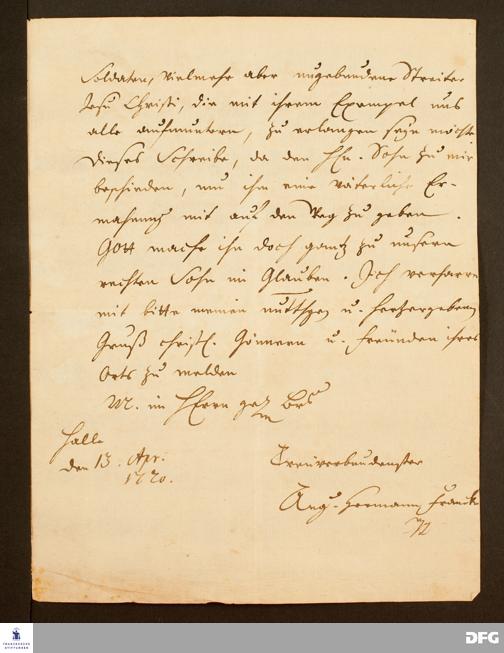 Soldaten, vielmehr aber ungebundene Streiter
Jesu Christi, die mit ihrem Exempel uns
alle aufmuntern, zu erlangen seyn möchte
Dieses schreibe, da den Hn. Sohn zu mir
beschieden, um ihm eine väterliche Er-
mahnung mit auf den Weg zu geben.
Gott mache ihn doch gantz zu unsern
rechten Sohn im Glauben. Ich verharre
mit bitte meinen u. hertzergebenen
Gruß christl. Gönnern u. Freunden ihres
Orts zu melden
M. im HErrn
Halle
den 13. Apr.
1720.
Treuverbundenster
Aug. Hermann Franck
FRANCKESCHE
STIFTUNGEN
DFG